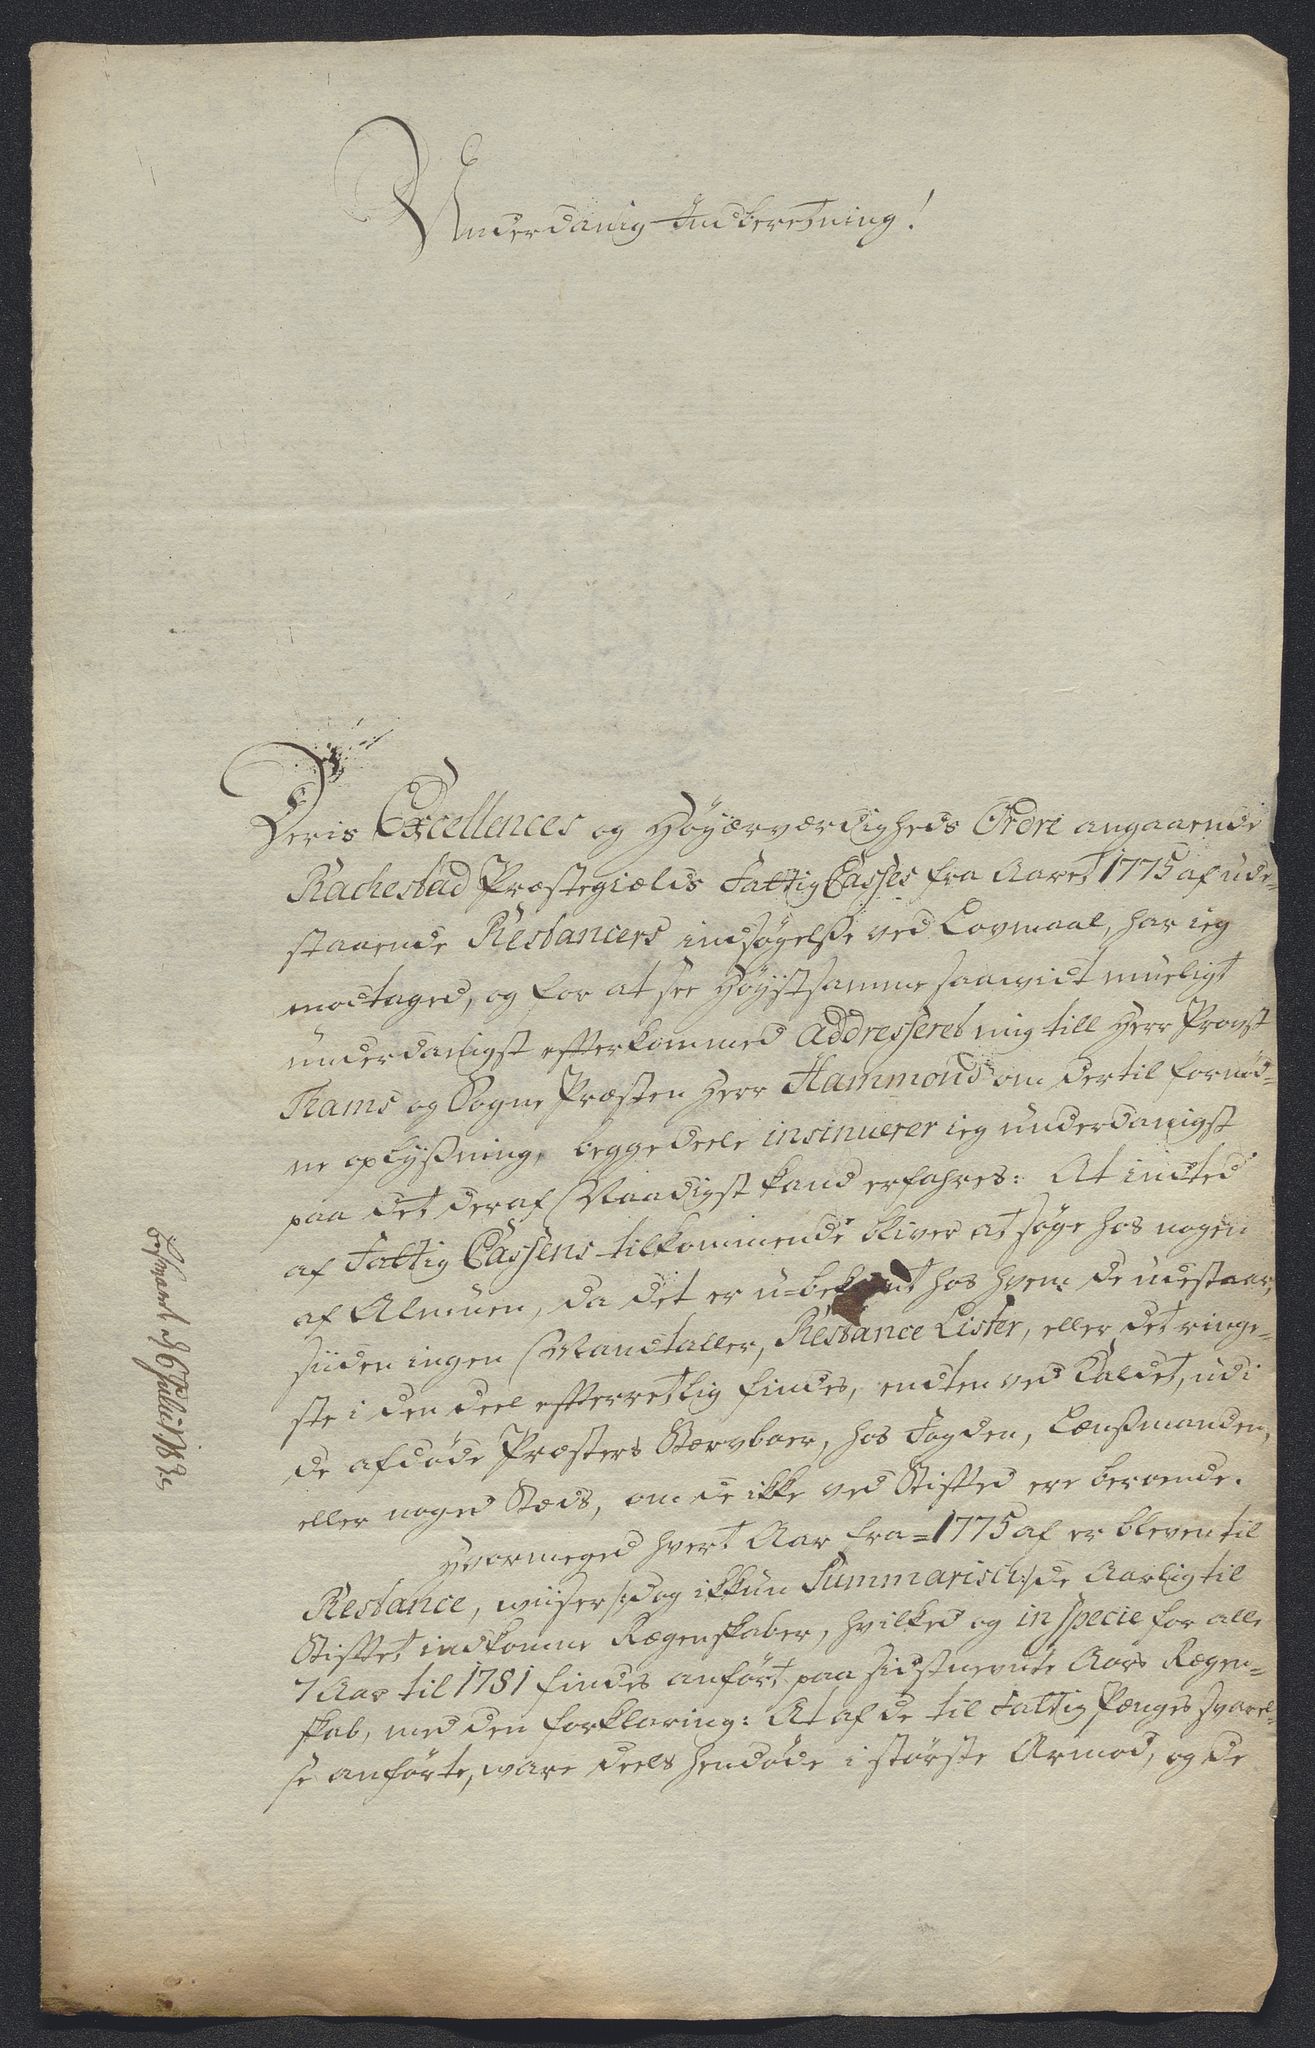 Underdanig Indberetning!
Deris Excellences og Høyærværdigheds Ordre angaaende
Rachestad Præstegiælds Fattig Casses fra Aaret 1775 af ude-
staaende Restancers indsøgelsse ved Lovmaal, har ieg
modtaged, og for at see Høystsamme saavidt mueligt
underdanigst efterkommed addresseret mig till Herr Provst
Rams og Sogne Præsten Herr Hammond om dertil fornød-
ne oplyssning, beggedeele insinuerer ieg underdanigst
paa det deraf Naadigst kand erfahres: At indted
af Fattig Cassens tilkommende bliver at søge hos nogen
af Almuen, da det er u-bekandt hos hvem de udestaar,
siiden ingen Mandtaller, Restance Lister, eller det ringe-
ste i den deel efterretlig findes, endten ved Kaldet, udi
de afdøde Præsters Stervboer, hos Fogden, Lænssmanden,
eller noged Stæds, om de ikke ved Stifted ere beroende.
Hvormeged hvert Aar fra = 1775 af er bleven til
Restance, wiiser /: dog ikkun Summarisch :/ de Aarlig til
Stiftet indkomne Regenskaber, hvilked og in specie for alle
7 Aar til 1781 findes anført paa sidstnevnte Aars Regen-
skab, med den forklaring: At af de til Fattig Penges svarel-
se anførte, ware deels hendøde i største Armod, og de
Besvaret d 6 Julii 178